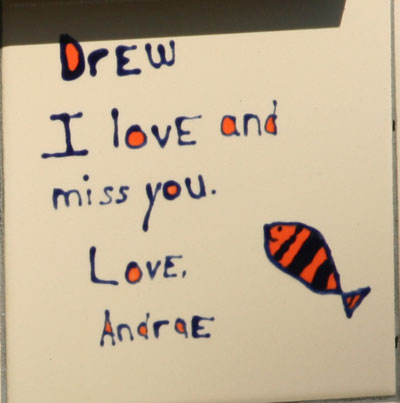 DrEW
I lovE and
miss you.
LovE,
AndraE